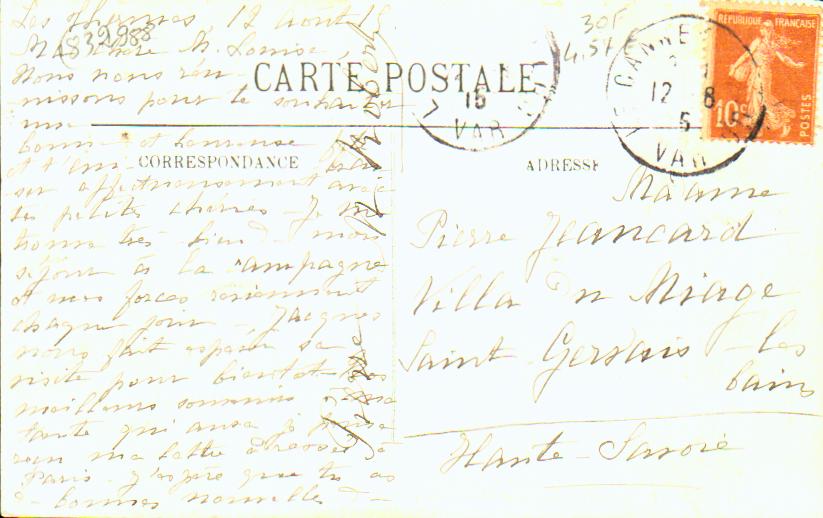 Les Thermes, 12 Août 15
Ma chère M. Louise,
Nous nous réu
nissons pour te souhaiter
une
bonne et heureuse fête
et t'em bras
ser affectueusement avec
tes petites chéries. Je me
trouve très bien de mon
séjour à la campagne
et mes forces reviennent
chaque jour. Jacques
nous fait espérer sa
visite pour bientôt. Nos
meilleurs souvenirs à ma
tante qui aura je pense
reçu ma lettre adressée à
Paris. J'espère que tu as
de bonnes nouvelles de
Pierre et Robert
832988
305
4,5f
CARTE POSTALE
CORRESPONDANCE
ADRESSE
15
VAR
LE CANNET
12 8
15
VAR
REPUBLIQUE FRANÇAISE
10c
POSTES
Madame
Pierre Jeancard
Villa du Miage
Saint-Gervais-les
bains
Haute-Savoie